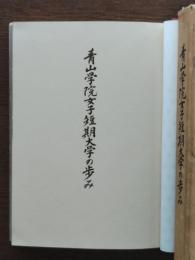 青山学院女子短期大学の歩み
青山学院女子短期大学の歩み